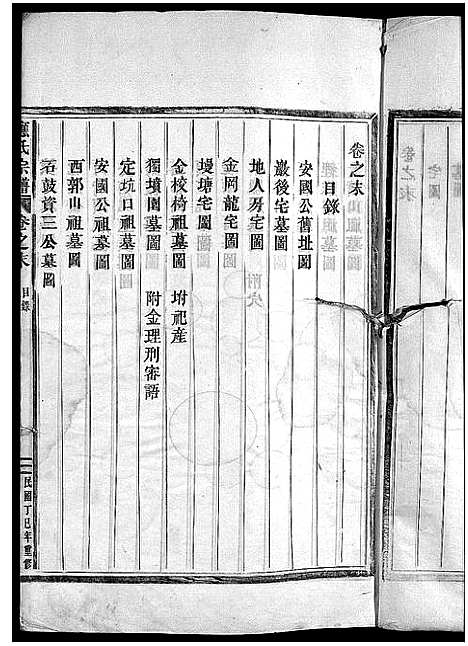 卷之末
目錄
安國公舊址圖
巖後宅墓圖
地人房宅圖
金岡龍宅圖
墁塘宅圖
金梭椅祖墓圖 坿祀産
獨墳園墓圖 附金理刑審語
定坑口祖墓圖
安國公祖墓圖
西郭山祖墓圖
石鼓資三公墓圖
氏宗譜 卷之末 目錄 民國丁巳年重修